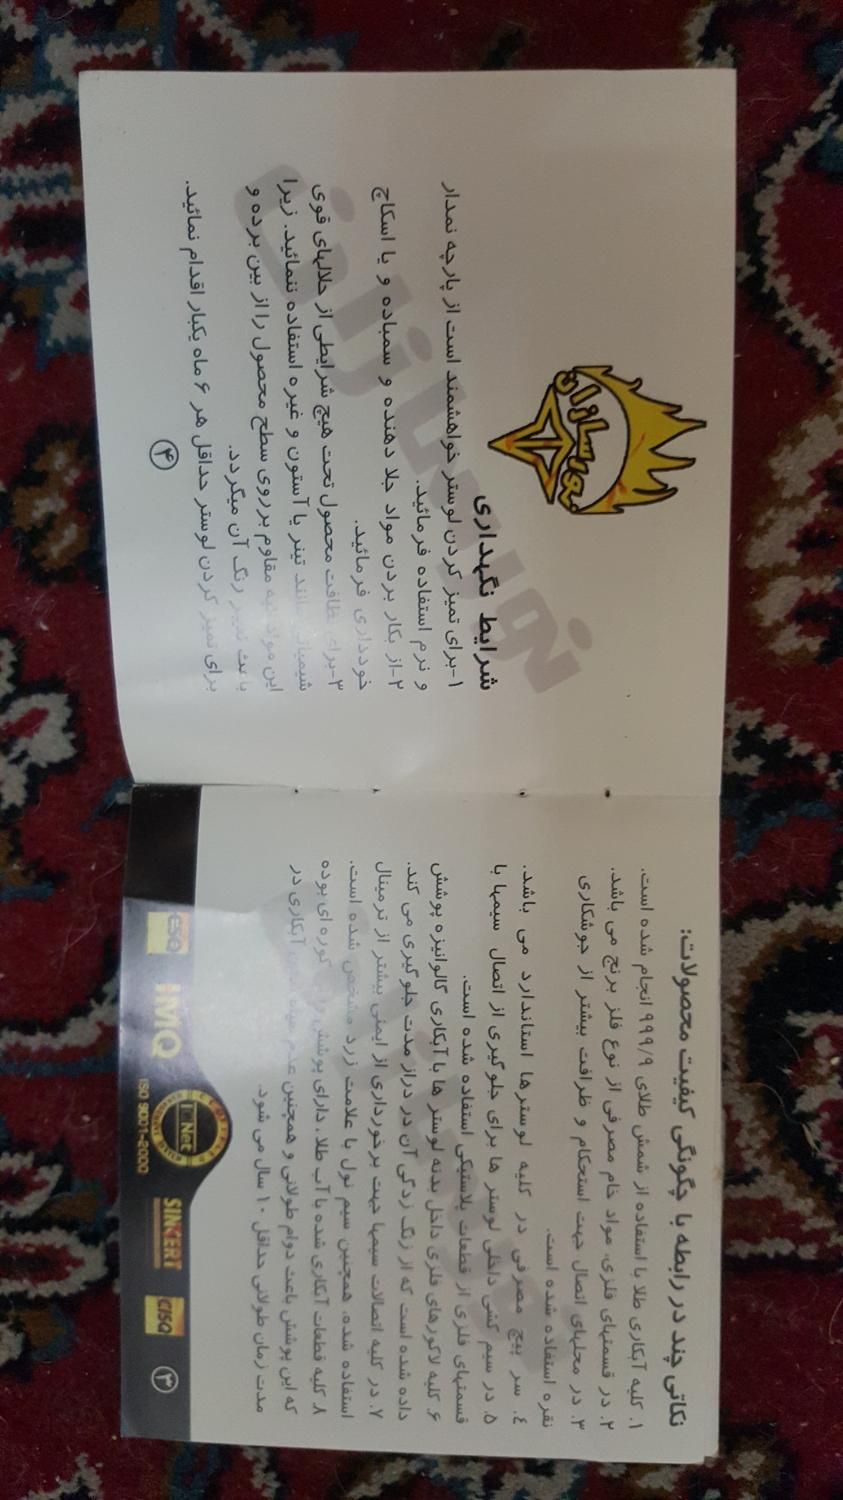 نکاتی چند در رابطه با چگونگی کیفیت محصولات:
۱. کلیه آبکاری طلا با استفاده از شمش طلای ۹۹۹/۹ انجام شده است.
۲. در قسمتهای فلزی، مواد خام مصرفی از نوع فلز برنج می باشد.
۳. در محلهای اتصال جهت استحکام و ظرافت بیشتر از جوشکاری
نقره استفاده شده است.
٤. سر پیچ مصرفی در کلیه لوسترها استاندارد می باشد.
۵. در سیم کشی داخلی لوستر ها برای جلوگیری از اتصال سیمها با
قسمتهای فلزی از قطعات پلاستیکی استفاده شده است.
۶. کلیه لاکورهای فلزی داخل بدنه لوستر ها با آبکاری گالوانیزه پوشش
داده شده است که از زنگ زدگی آن در دراز مدت جلوگیری می کند.
۷. در کلیه اتصالات سیمها جهت برخورداری از ایمنی بیشتر از ترمینال
استفاده شده، همچنین سیم نول با علامت زرد مشخص شده است.
۸. کلیه قطعات آبکاری شده با آب طلا، دارای پوشش کوره ای بوده
که این پوشش باعث دوام طولانی و همچنین عدم آبکاری در
مدت زمان طولانی حداقل ۱۰ سال می شود.
IMQ
IQNet
ISO 9001-2000
SINCERT
CISQ
۳
نورسازان
شرایط نگهداری
۱-برای تمیز کردن لوستر خواهشمند است از پارچه نمدار
و نرم استفاده فرمائید.
۲-از بکار بردن مواد جلا دهنده و سمباده و یا اسکاچ
خودداری فرمائید.
۳-برای نظافت محصول تحت هیچ شرایطی از حلالهای قوی
شیمیایی مانند تینر یا آستون و غیره استفاده ننمائید. زیرا
این مواد لایه مقاوم بر روی سطح محصول را از بین برده و
باعث تغییر رنگ آن میگردد.
برای تمیز کردن لوستر حداقل هر ۶ ماه یکبار اقدام نمائید.
۴
نورسازان